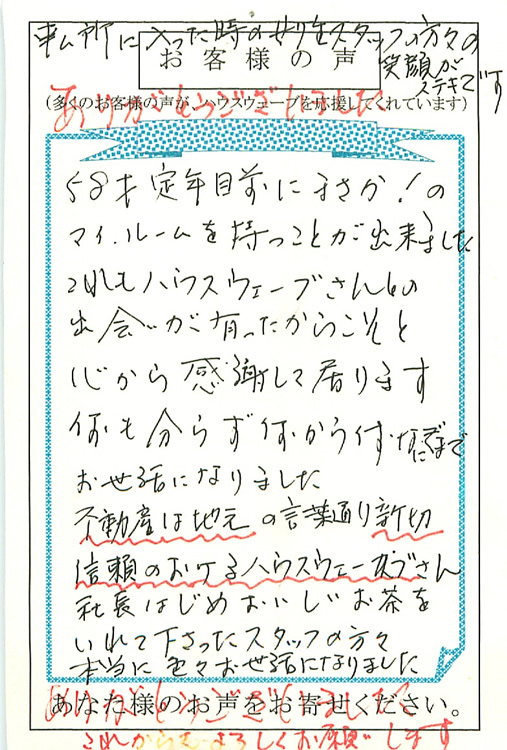 事ム所に入った時のせりをスタッフの方々の
笑顔が
ステキです
お客様の声
(多くのお客様の声が、ハウスウェーブを応援してくれています)
ありがとうございました
58才定年目前にまさか!の
マイ.ルームを持つことが出来ました
これもハウスウェーブさんとの
出会いが有ったからこそと
心から感謝して居ります
何も分らず何から何なにまで
お世話になりました
不動産は地元の言葉通り新切
信頼のおけるハウスウェーブさん
社長はじめおいしいお茶を
いれて下さったスタッフの方々
本当に色々お世話になりました
ありがとうございました
あなた様のお声をお寄せください。
これからもよろしくお願いします